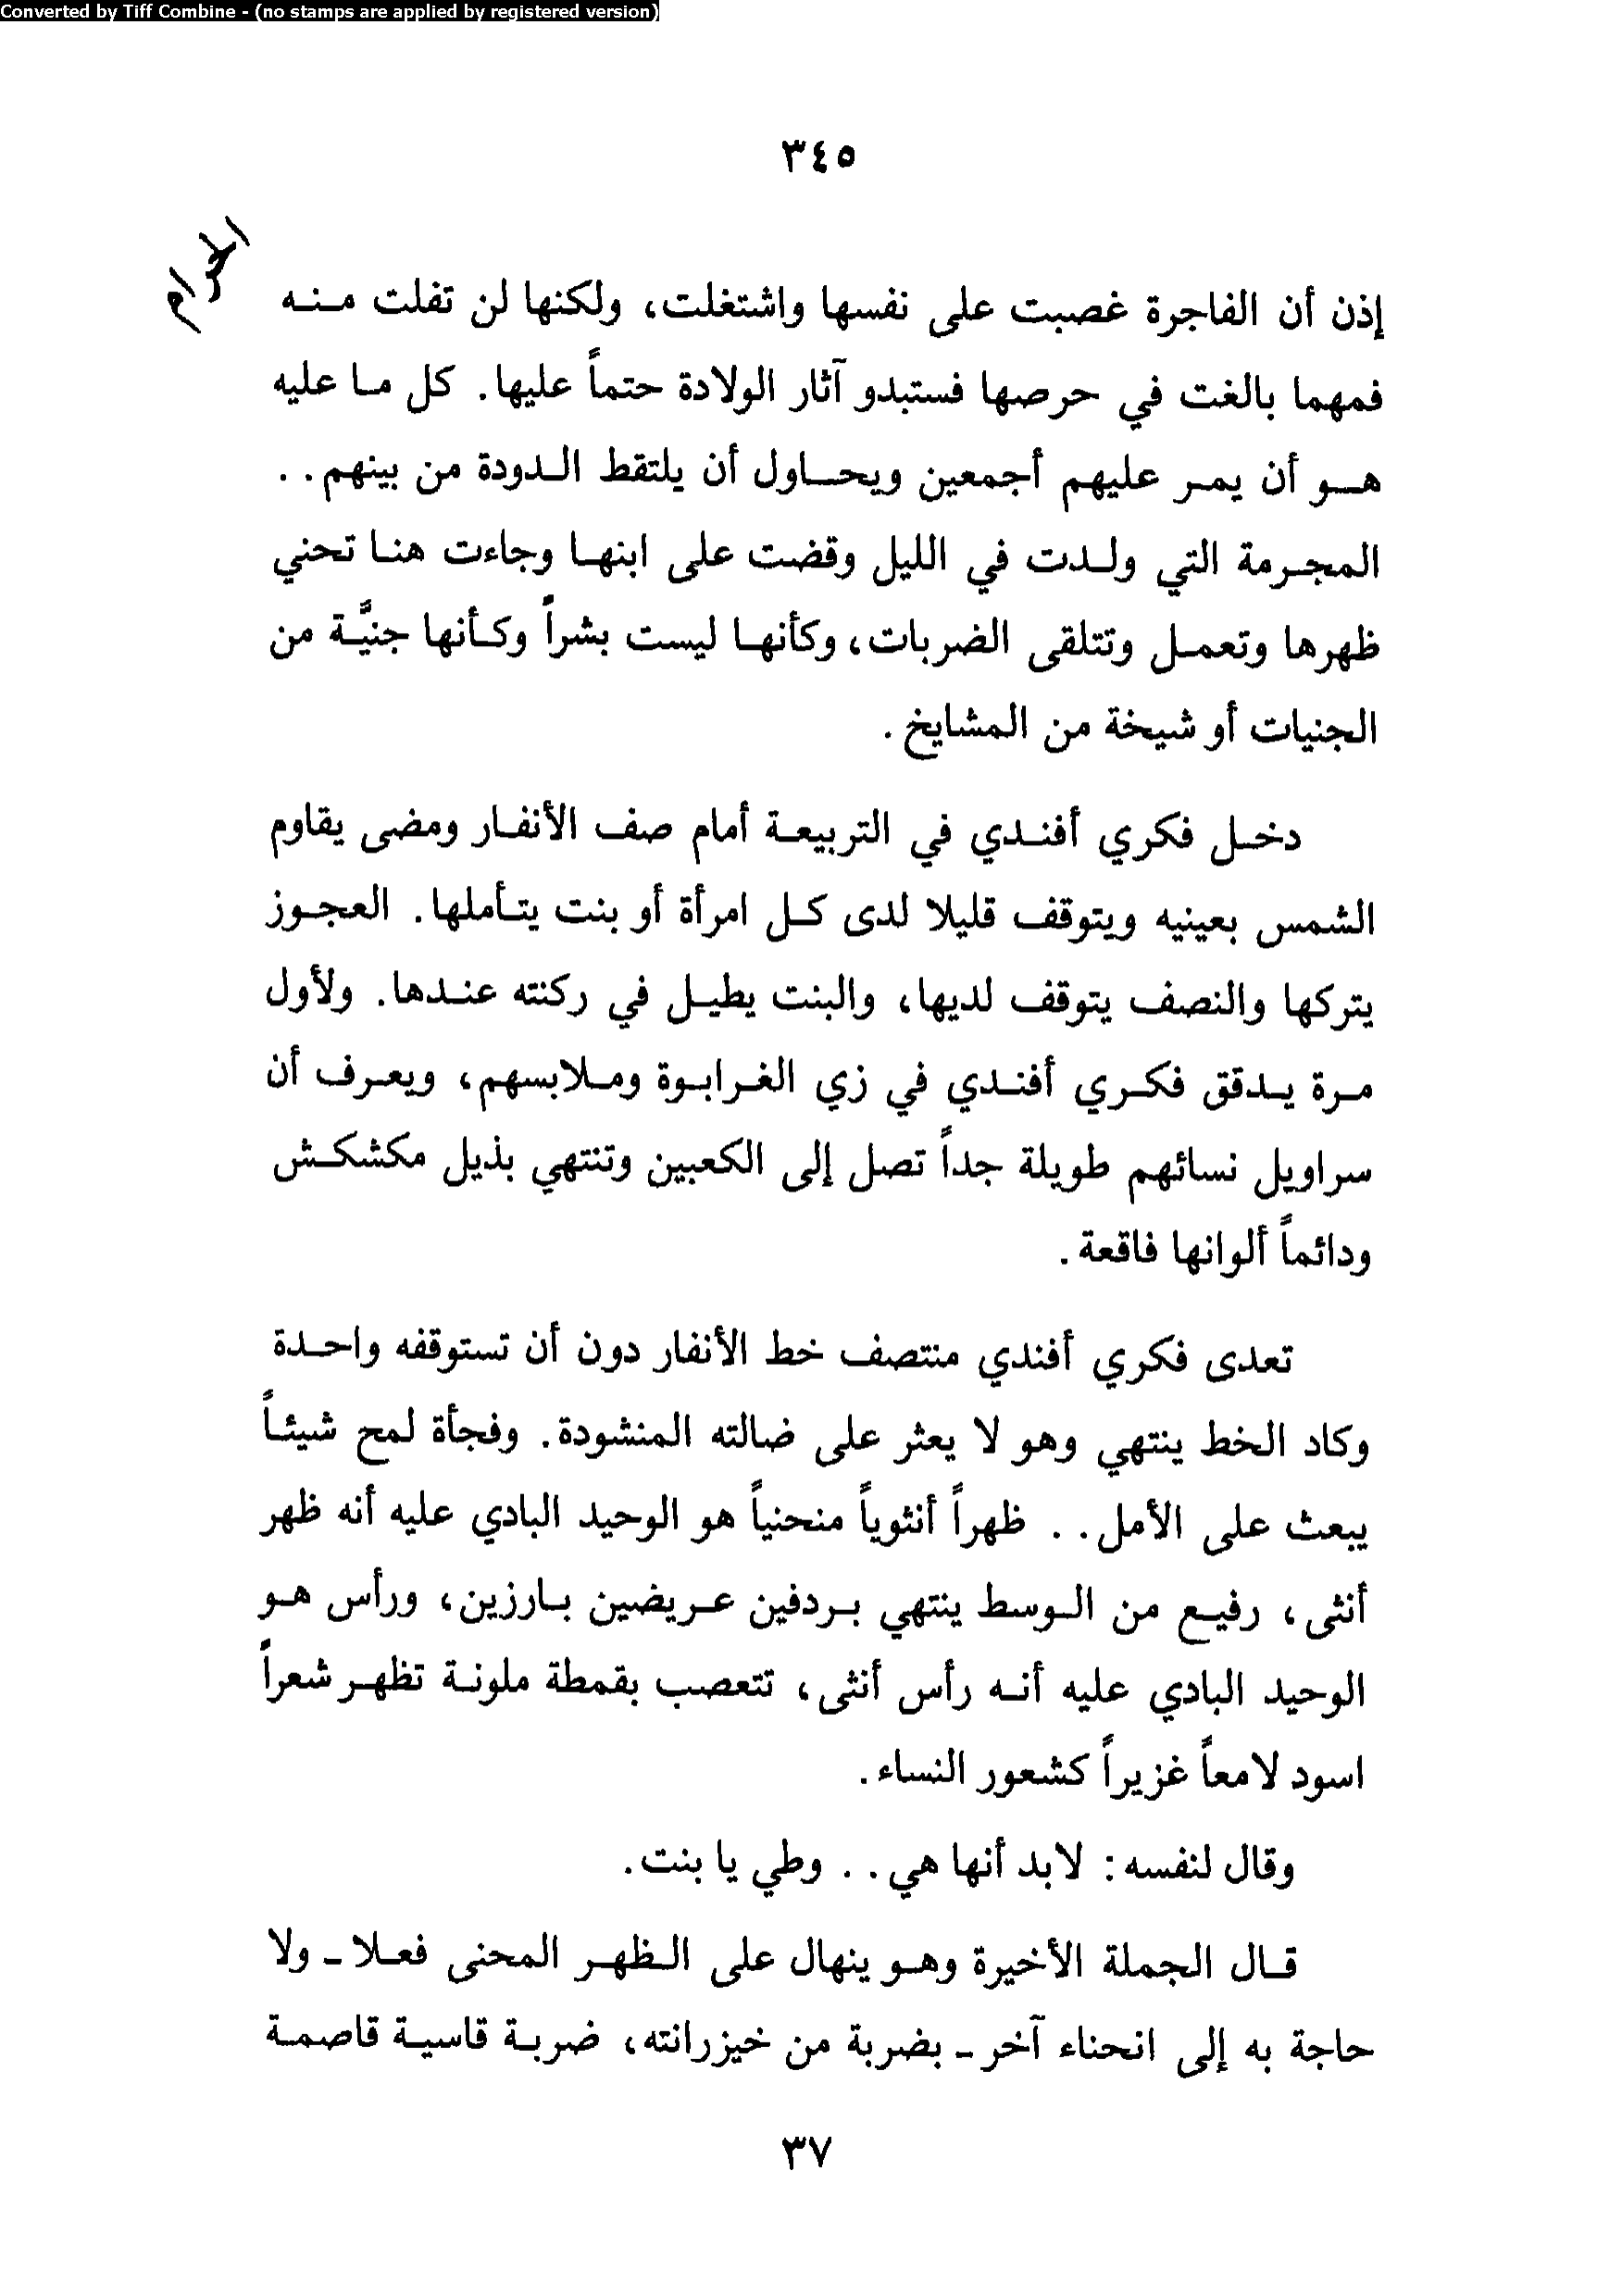 Converted by Tiff Combine - (no stamps are applied by registered version)
٣٤٥
الحرام
إذن أن الفاجرة غصبت على نفسها واشتغلت، ولكنها لن تفلت منه
فمهما بالغت في حرصها فستبدو آثار الولادة حتماً عليها. كل ما عليه
هو أن يمر عليهم أجمعين ويحاول أن يلتقط الدودة من بينهم..
المجرمة التي ولدت في الليل وقضت على ابنها وجاءت هنا تحني
ظهرها وتعمل وتتلقى الضربات، وكأنها ليست بشراً وكأنها جنيَّة من
الجنيات أو شيخة من المشايخ.
دخل فكري أفندي في التربيعة أمام صف الأنفار ومضى يقاوم
الشمس بعينيه ويتوقف قليلا لدى كل امرأة أو بنت يتأملها. العجوز
يتركها والنصف يتوقف لديها، والبنت يطيل في ركنته عندها. ولأول
مرة يدقق فكري أفندي في زي الغرابوة وملابسهم، ويعرف أن
سراويل نسائهم طويلة جداً تصل إلى الكعبين وتنتهي بذيل مكشكش
ودائماً ألوانها فاقعة.
تعدى فكري أفندي منتصف خط الأنفار دون أن تستوقفه واحدة
وكاد الخط ينتهي وهو لا يعثر على ضالته المنشودة. وفجأة لمح شيئاً
يبعث على الأمل.. ظهراً أنثوياً منحنياً هو الوحيد البادي عليه أنه ظهر
أنثى، رفيع من الوسط ينتهي بردفين عريضين بارزين، ورأس هو
الوحيد البادي عليه أنه رأس أنثى، تتعصب بقمطة ملونة تظهر شعراً
اسود لامعاً غزيراً كشعور النساء.
وقال لنفسه: لابد أنها هي.. وطي يا بنت.
قال الجملة الأخيرة وهو ينهال على الظهر المحنى فعلا - ولا
حاجة به إلى انحناء آخر - بضربة من خيزرانته، ضربة قاسية قاصمة
٣٧